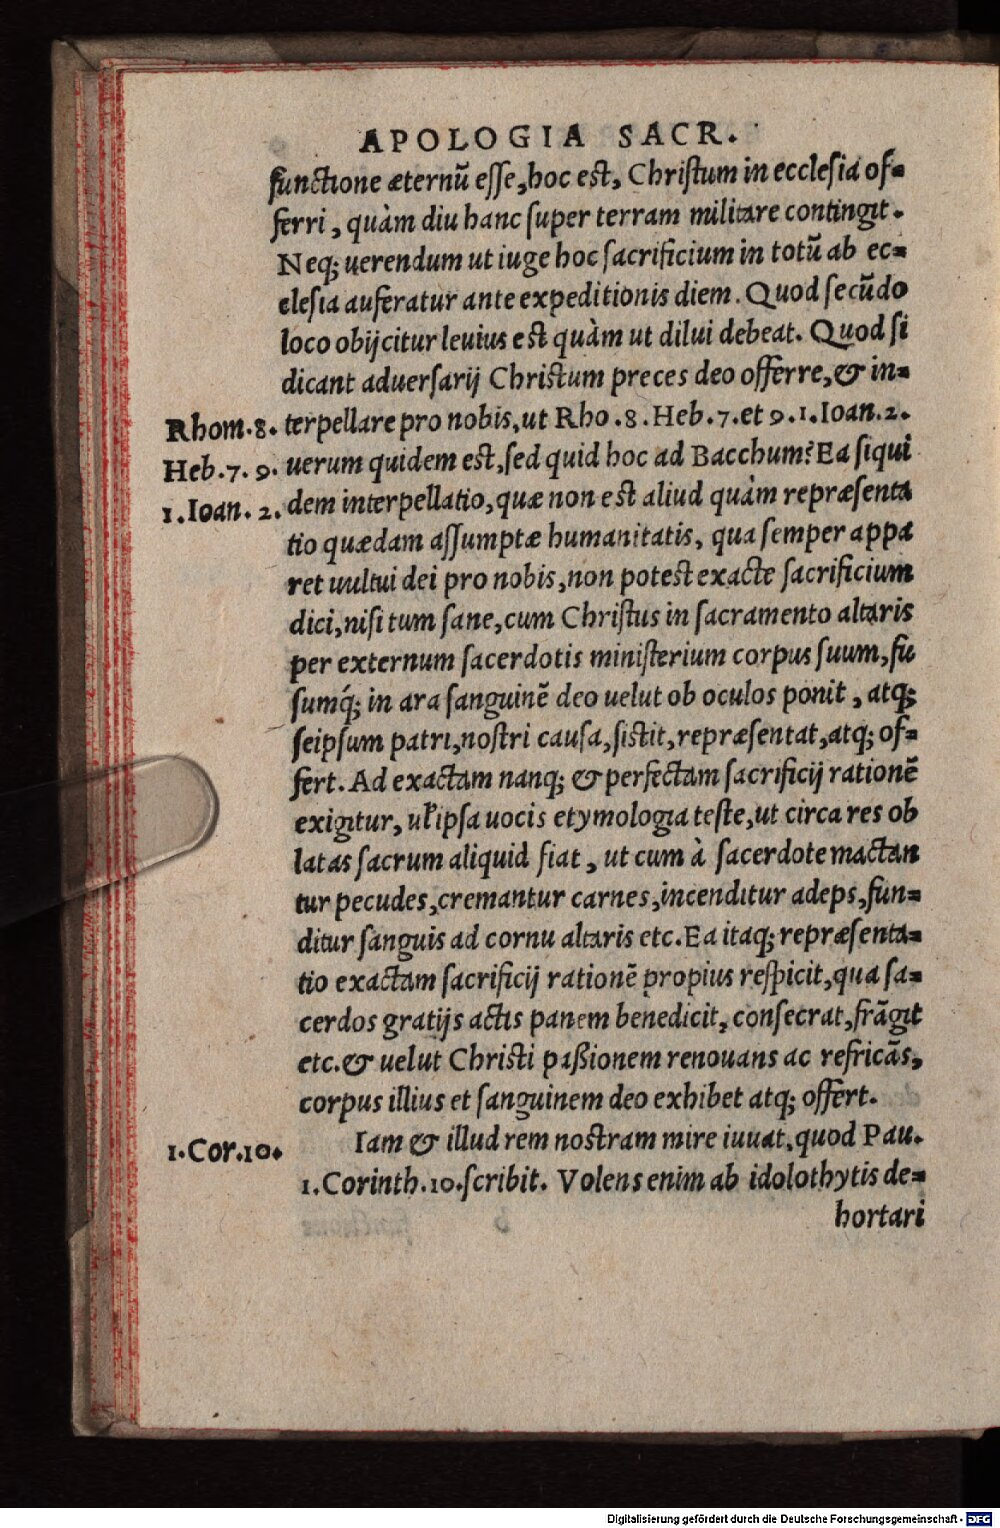 APOLOGIA SACR.
functione æternū esse, hoc est, Christum in ecclesia of=
ferri, quàm diu hanc super terram militare contingit.
Neq; uerendum ut iuge hoc sacrificium in totū ab ec=
clesia auferatur ante expeditionis diem. Quod secūdo
loco obijcitur leuius est quàm ut dilui debeat. Quod si
dicant aduersarij Christum preces deo offerre, & in=
Rhom.8. terpellare pro nobis, ut Rho.8. Heb.7. et 9. 1. Ioan.2.
Heb.7. 9. uerum quidem est, sed quid hoc ad Bacchum? Ea siqui
1. Ioan. 2. dem interpellatio, quæ non est aliud quàm repræsenta
tio quædam assumptæ humanitatis, qua semper appa
ret uultui dei pro nobis, non potest exacte sacrificium
dici, nisi tum sane, cum Christus in sacramento altaris
per externum sacerdotis ministerium corpus suum, su
sumq́; in ara sanguinē deo uelut ob oculos ponit, atq;
seipsum patri, nostri causa, sistit, repræsentat, atq; of=
fert. Ad exactam nanq; & perfectam sacrificij rationē
exigitur, uƚ ipsa uocis etymologia teste, ut circa res ob
latas sacrum aliquid fiat, ut cum à sacerdote mactan
tur pecudes, cremantur carnes, incenditur adeps, fun=
ditur sanguis ad cornu altaris etc. Ea itaq; repræsenta=
tio exactam sacrificij rationē propius respicit, qua sa=
cerdos gratijs actis panem benedicit, consecrat, frāgit
etc. & uelut Christi paßionem renouans ac refricās,
corpus illius et sanguinem deo exhibet atq; offert.
Iam & illud rem nostram mire iuuat, quod Pau.
1. Cor.10. 1. Corinth.10. scribit. Volens enim ab idolothytis de=
hortari
Digitalisierung gefördert durch die Deutsche Forschungsgemeinschaft - DFG